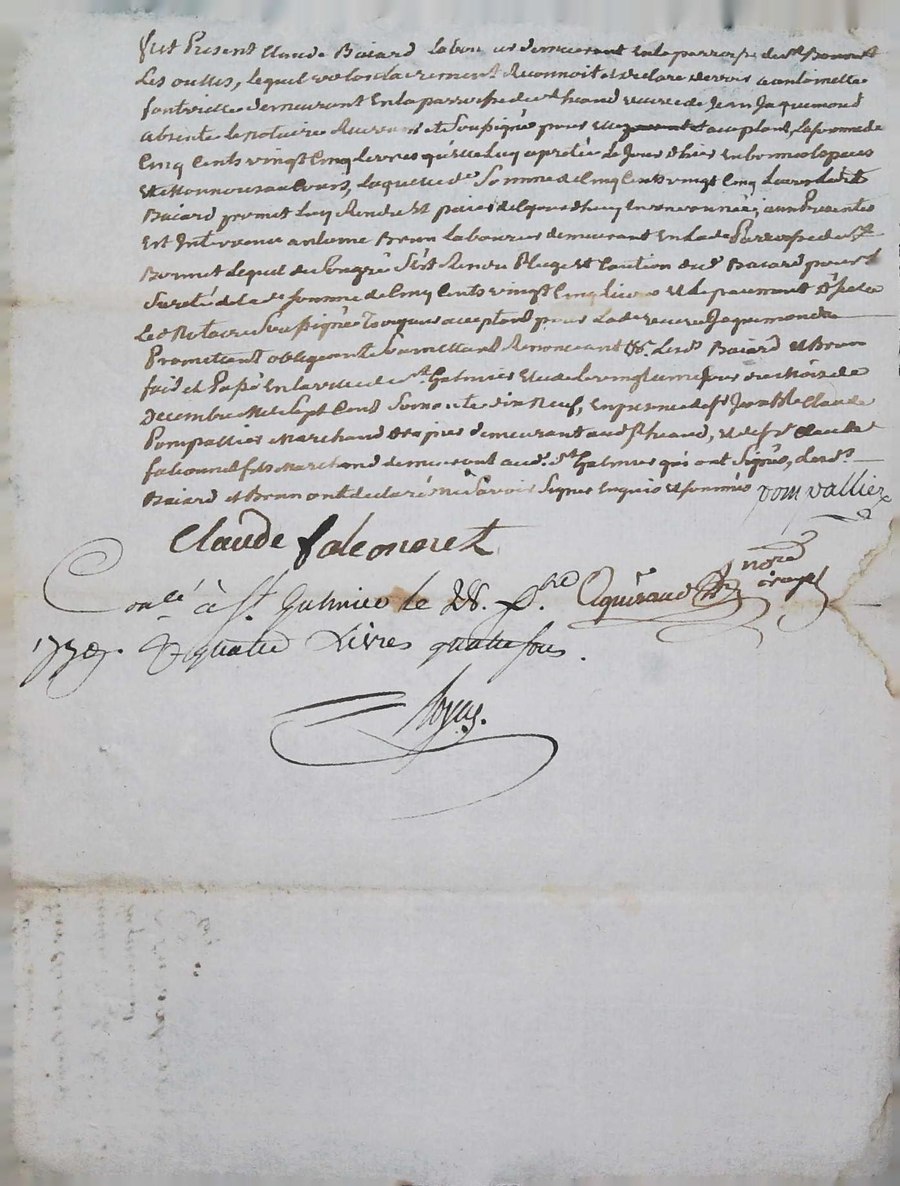 Fut Present Claude Baiard laboureur demeurant en la parroisse de st Bonnet
Les oulles, lequel volontairement Reconnoit et declare devoir a antoinette
demeurant En la parroisse de st heand veuve de Jean Jaquemond
absente le notaire Recevant et Soussigné pour elle acceptant, la somme de
Cinq Cents vingt Cinq Livres qu'elle luy a preté ce Jour d'hier en bonnes Especes
et aÿant cours, laquelle de Somme de Cinq Cents vingt Cinq Livres ledt
Baiard promet luy Rendre et paier d'aujourdhuy en une année; aux Presentes
Est Intervenu antoine Brun laboureur demeurant En lade Parroisse de St
Bonnet Lequel de son gré S'est Rendu Plege et Caution dudt Baiard pour la
Sureté de lade somme de Cinq Cents vingt Cinq livres et le paiement d'icelle
Led Notaire Soussigné Toujours acceptant pour lade veuve Jaquemond
Promettant obligeant Soumettant Renonceant &c. Lesds Baiard et Brun
fait et Passé En la ville de st Galmier Etude le vingtieme Jour du Mois de
Decembre Mil Sept Cent Soixante dix Neuf, en presence de Sr Claude
Pompallier Marchand demeurant aud St heand, et de Sr Claude
falconnet fils Marchand demeurant aud. St Galmier qui ont Signés, Lesds
Baiard et Brun ont declaré ne Savoir Signer Enquis et sommés pompallier
Claude falconnet
Conlé à St Galmier le 28. Xbre
1779. R quatre Livres quatre sous.